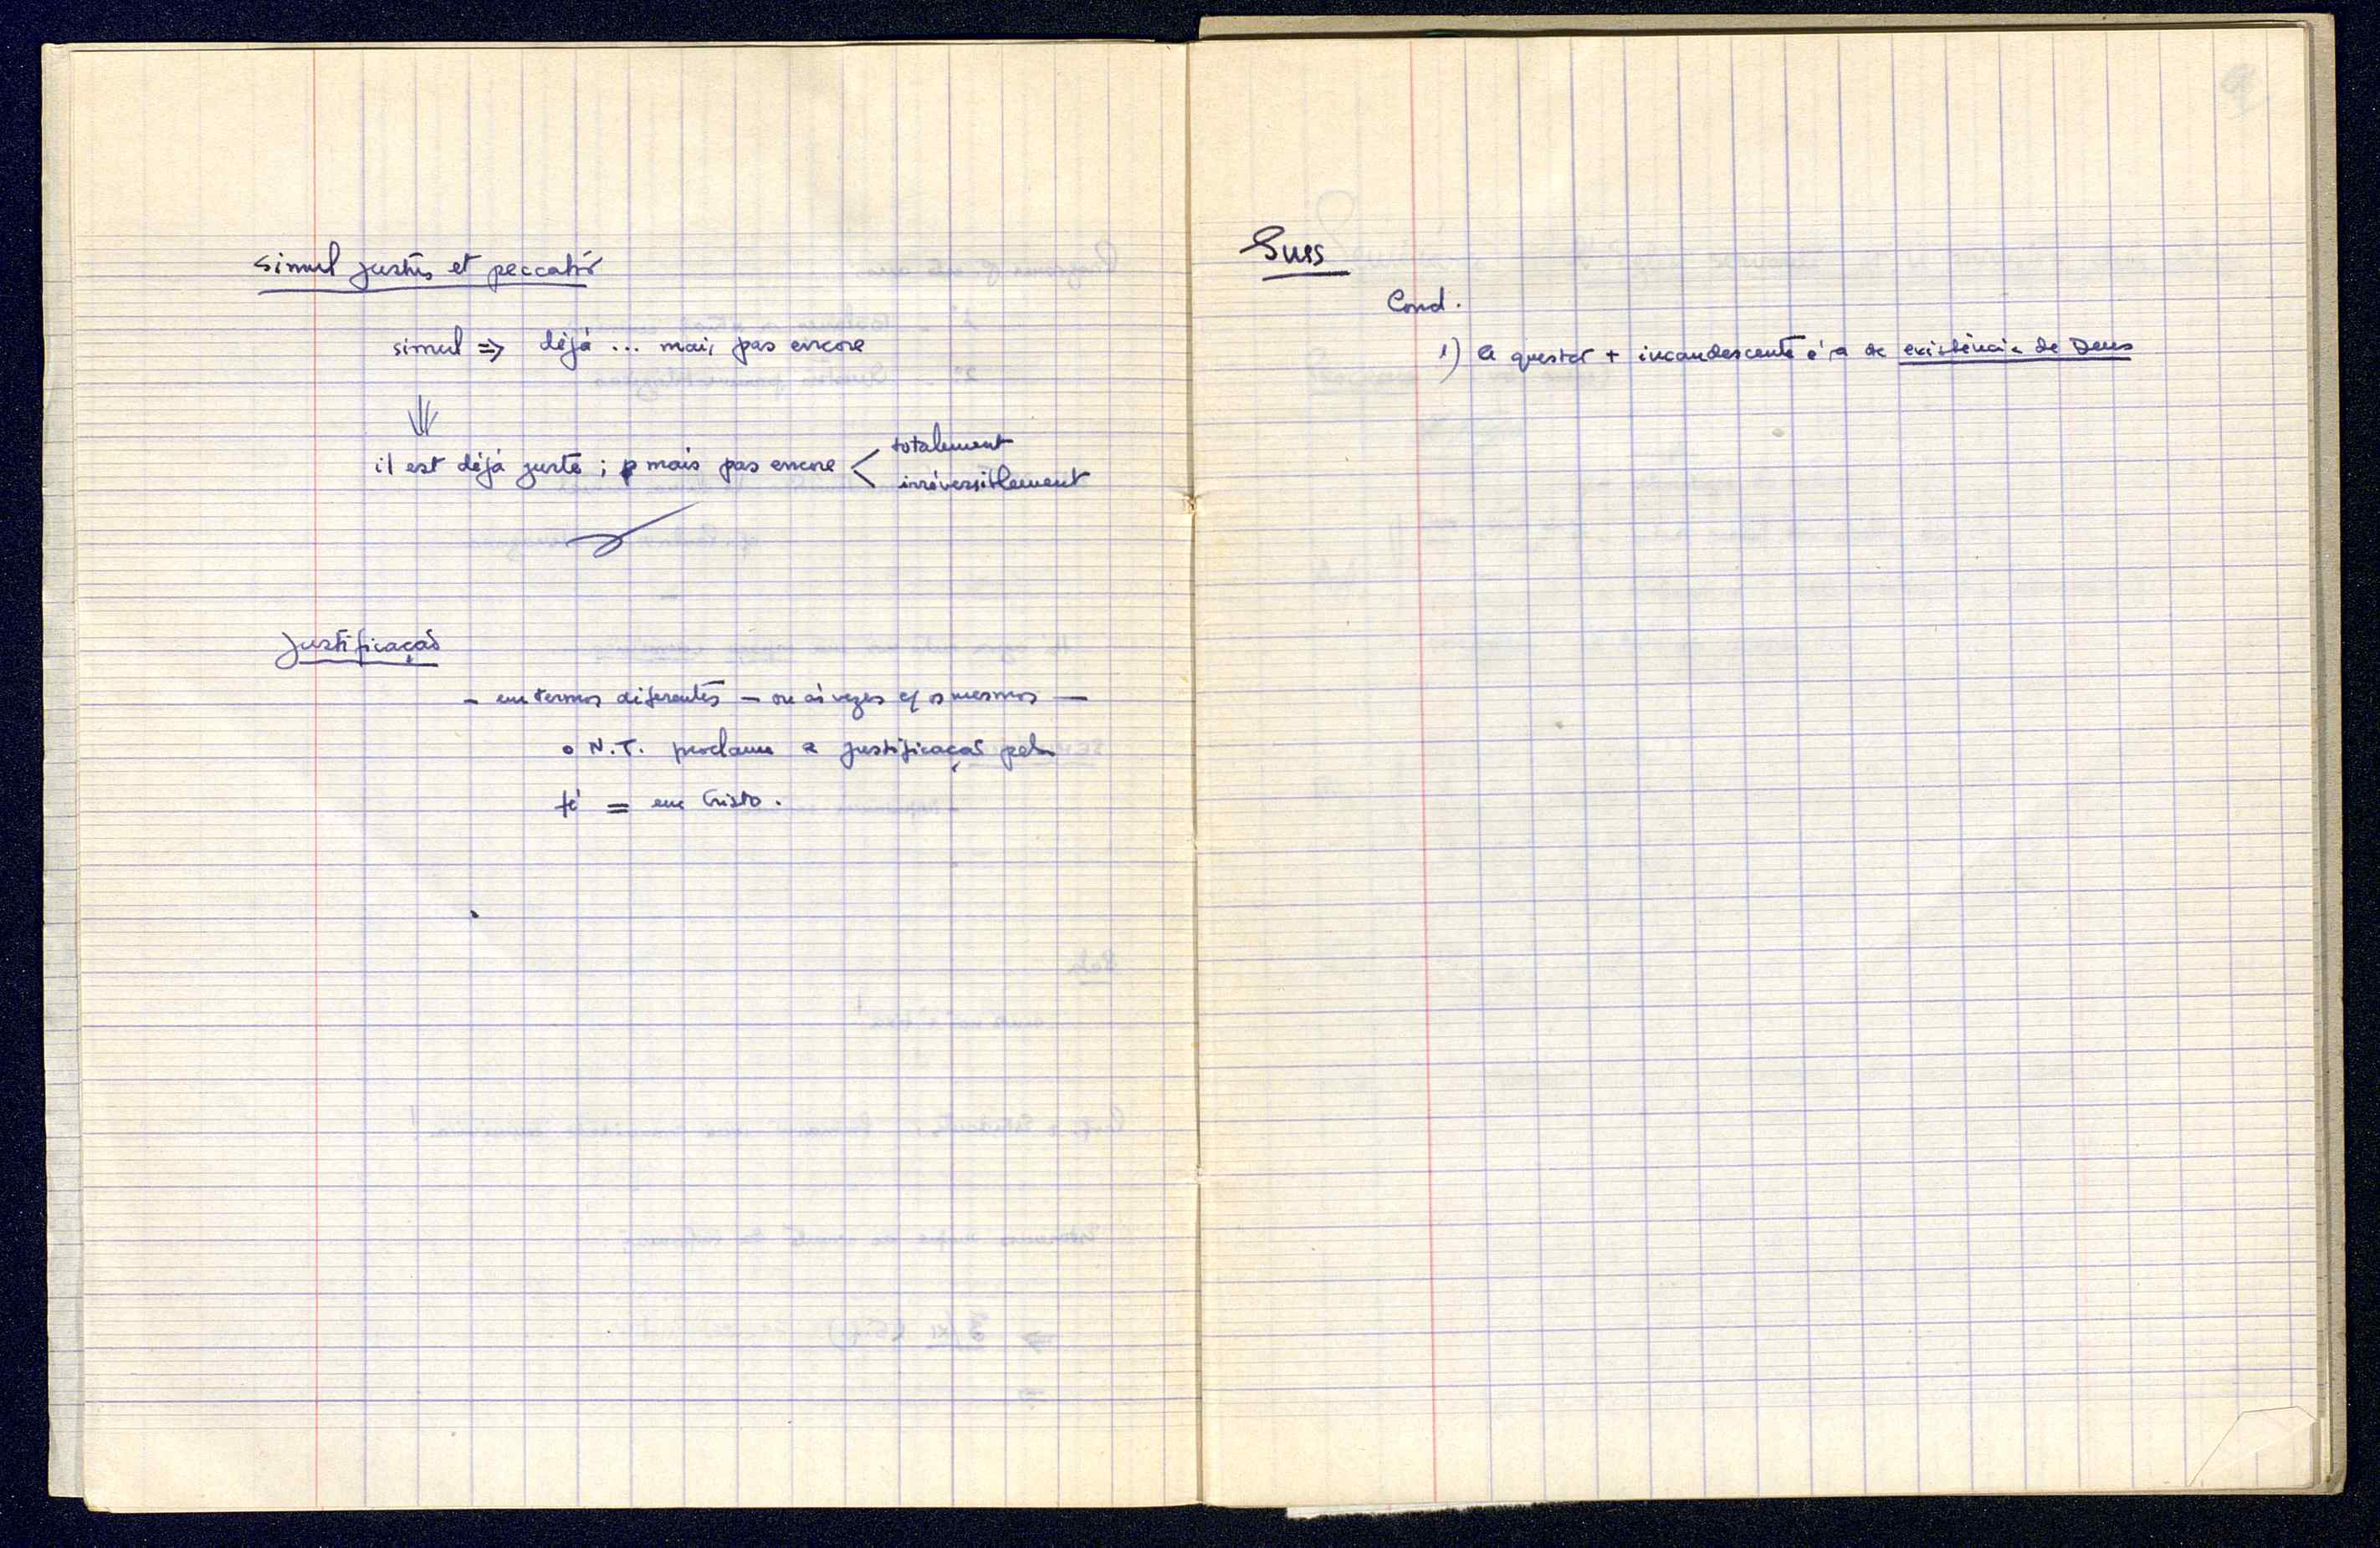 simul justus et peccator
simul => déjà ... mais pas encore
il est déjà juste ; mais pas encore < totalement
irréversiblement
Justificação
- em termos diferentes - ou às vezes c/ os mesmos -
o N.T. proclama a justificação pela
fé = em Cristo.
Suss
Cond.
1) A questão + incandescente é a da existência de Deus